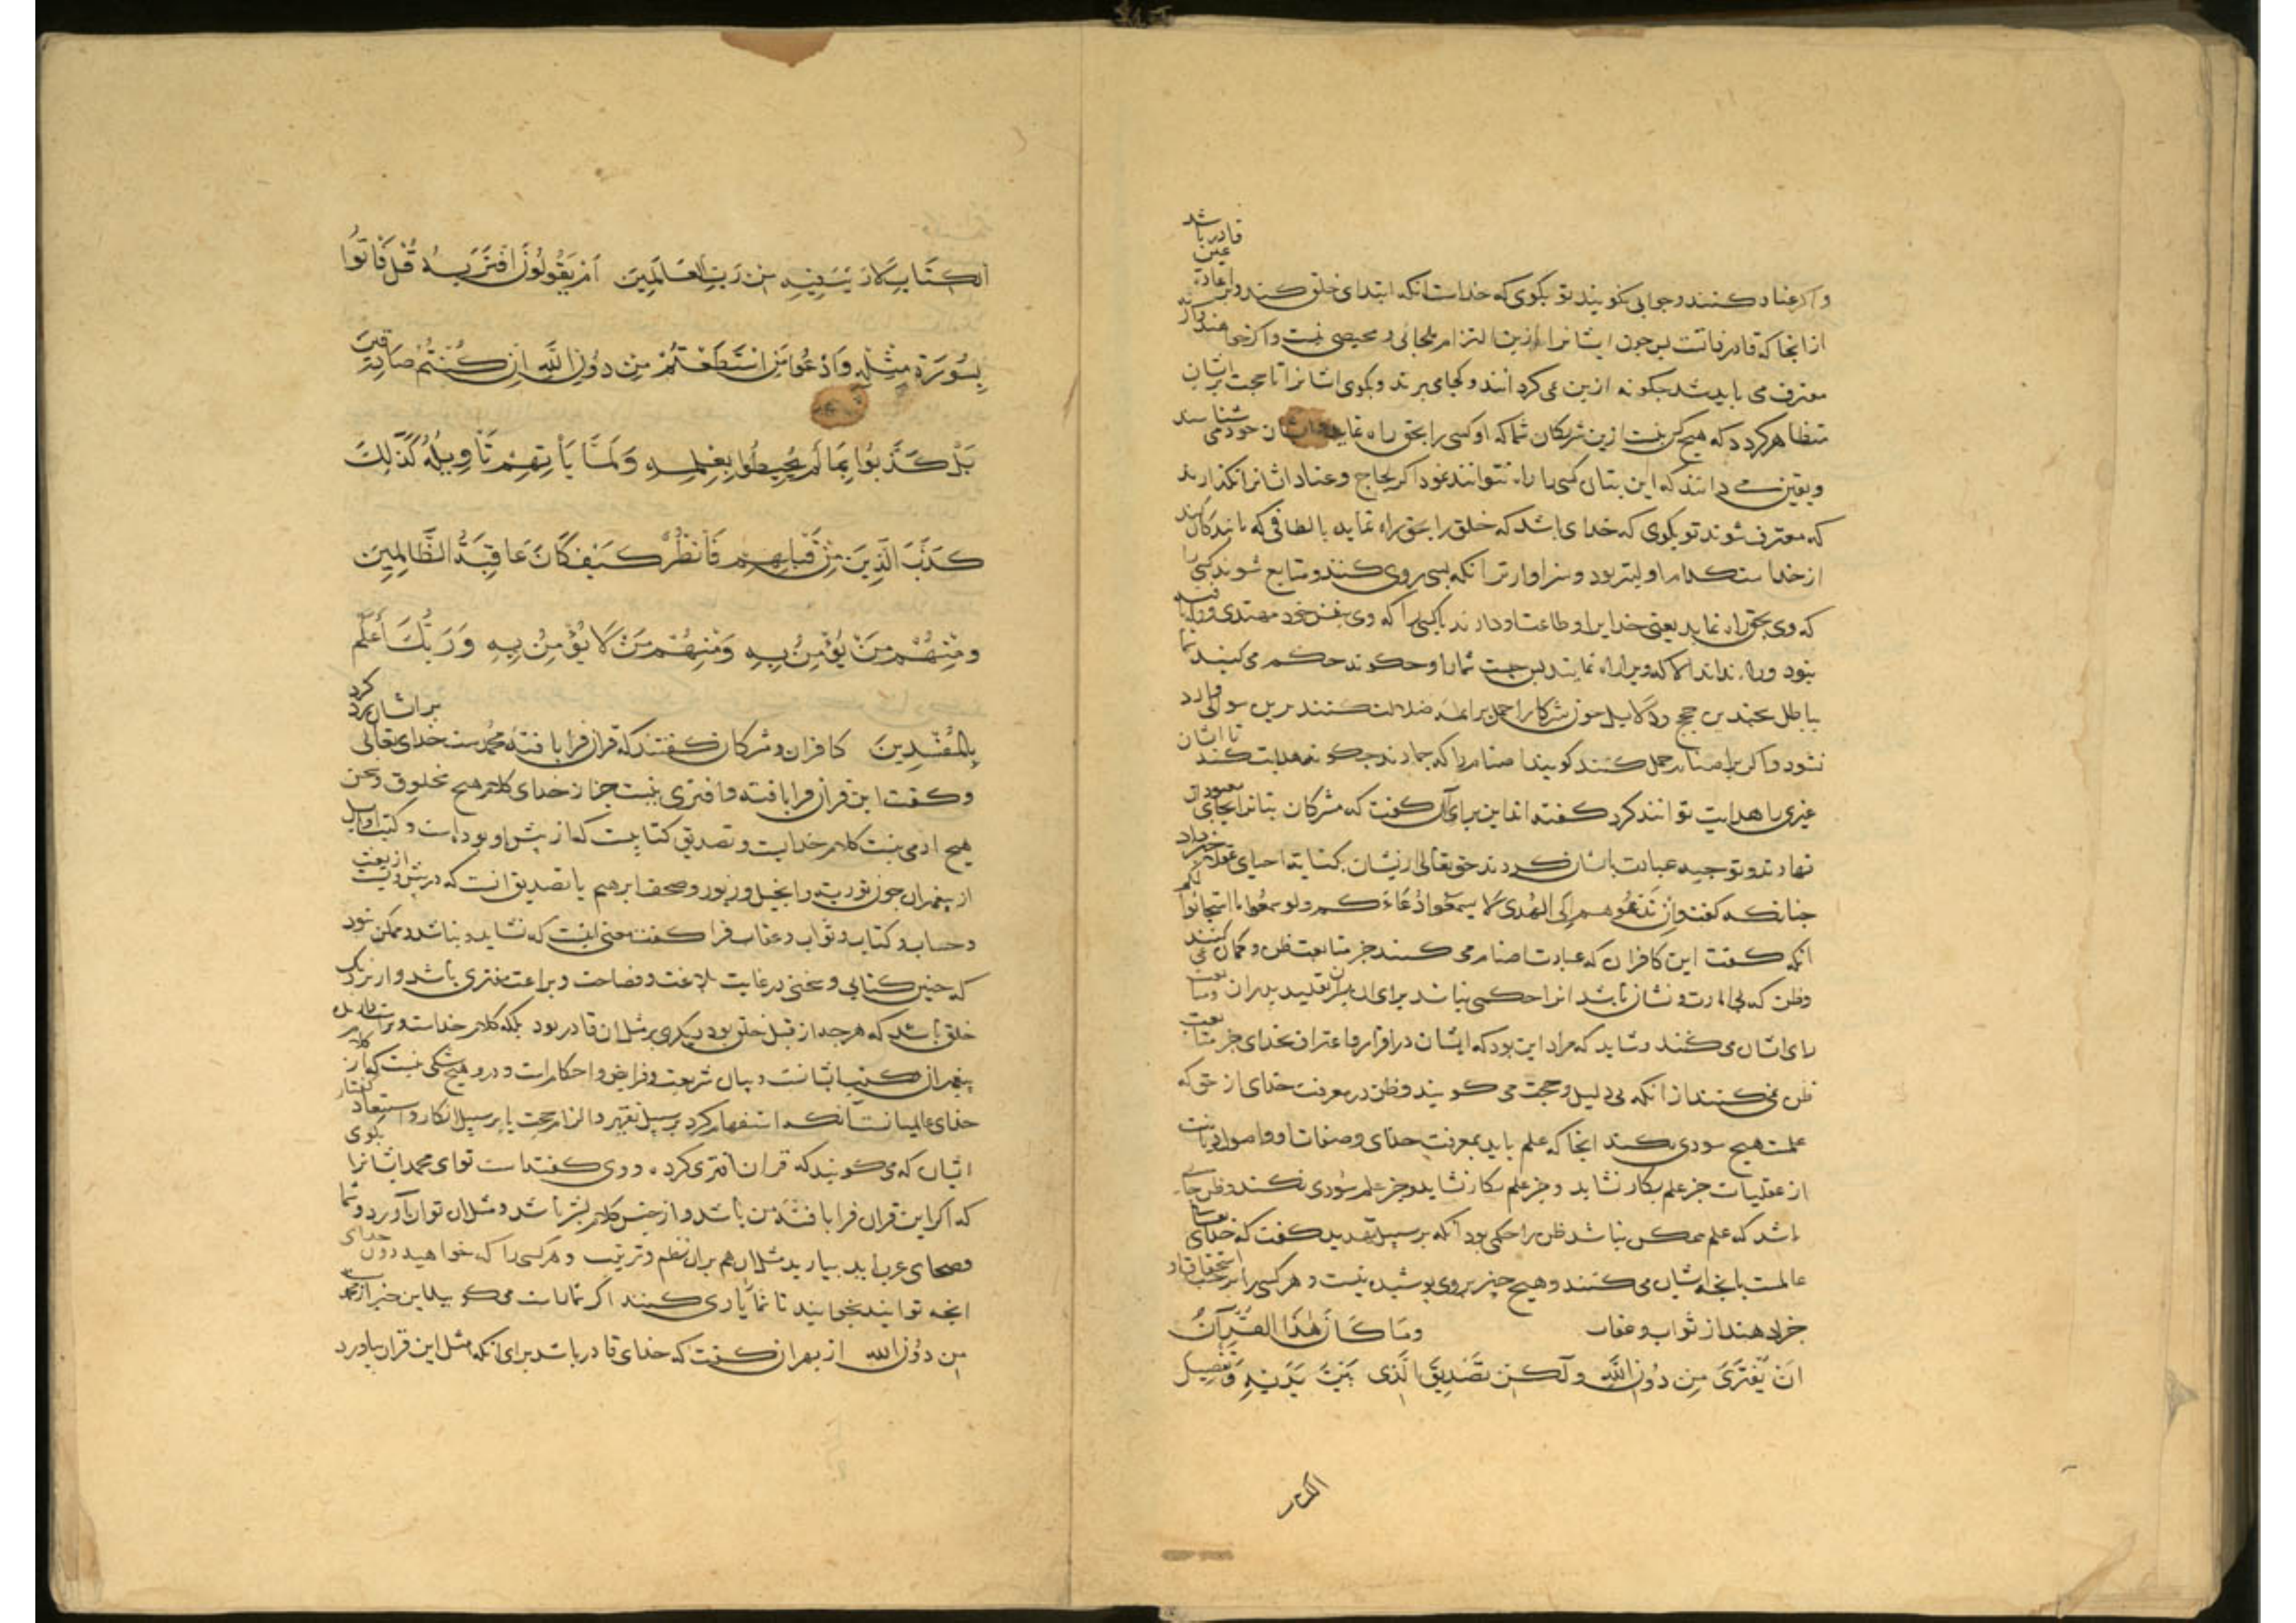 و اگر عناد کنند و جوابی نگویند تو بگوی که خداست انکه ابتدای خلق کند و بر اعادة عین قادر باشد
از انجا که قادر ذاتست پس چون ایشانرا ازین التزام ملجائی و محیصی نیست و اگر نخواهند و ار نه
معترف می باید شد چگونه ازین می کردانند و کجا می برند و بگوی اشانرا تا حجت بر اشان
متظاهر کردد که هیچ کس نیست ازین شریکان شما که او کسی را بحق راه نماید اشان خود می شناسند
و یقین می دانند که این بتان کسی را راه نتوانند نمود اگر لجاج و عناد اشانرا نکذارند
که معترف شوند تو بکوی که خدای باشد که خلق را بحق راه نماید بالطافی که با بندکان کند
از خداست کدام اولیتر بود و سزاوارتر انکه پس روی کنند و متابع شوند کسی را
که وی بحق راه نماید یعنی خدایرا و طاعت او دارند یا کسی را که وی بنفس خود مهتدی و راه یافته
نبود و راه نداند الا که ویرا راه نمایند پس چیست شما را و چکونه حکم می کنید تا
بباطل
نشود و اگر بر اصنام حمل کنند کویند اصنام را که جمادند چکونه هدایت کنند تا اشان
غیری را هدایت توانند کرد کفته اند این برای آن کفت که مشرکان بتانرا بجای معبود از
نهادند و توجیه عبادت باشان کردند حق تعالی ازیشان بکنایه احیای عقلا خبر داد
چنانکه کفت وان تدعوهم الی الهدی لا یسمعوا دعاءکم ولو سمعوا ما استجابوا لکم
انکه کفت این کافران که عبادت اصنام می کنند جز متابعت ظن و کمان نمی کنند
وظن که بی امارت و نشان باشد انرا حکمی نباشد برای ان بر تقلید پدران
رای اشان می کنند و شاید که مراد این بود که ایشان در اقرار و اعتراف بخدای جز متابعت
ظن نمی کنند از انکه بی دلیل و حجت می کویند وظن در معرفت خدای از حق که
علمست هیچ سودی نکند انجا که علم باید بمعرفت خدای و صفات او و اصول دیانت
از عقلیات جز علم بکار نشاید و جز علم بکار نشاید و جز علم سودی نکند وظن جایی
باشد که علم ممکن نباشد ظن را حکمی بود آنکه بر سبیل تهدید کفت که خدای تعالی
عالمست بانچه اشان می کنند و هیچ چیز بر وی پوشیده نیست و هر کسی را بر حسب استحقاق او
جزا دهند از ثواب و عقاب وما كان هذا القرآن
ان يفترى من دون الله ولكن تصديق الذى بين يديه وتفصيل
الكتاب لا ريب فيه من رب العالمين ام يقولون افتريه قل فاتوا
بسورة مثله وادعوا من استطعتم من دون الله ان كنتم صادقين
بل كذبوا بما لم يحيطوا بعلمه ولما ياتهم تاويله كذلك
كذب الذين من قبلهم فانظر كيف كان عاقبة الظالمين
ومنهم من يؤمن به ومنهم من لا يؤمن به وربك اعلم
بالمفسدين کافران و مشرکان کفتند که قران فرا بافتۀ محمد ست خدای تعالی بر اشان رد کرد
و کفت این قران فرا بافته و افتری نیست جز از خدای کلام هیچ مخلوق و سخن
هیچ ادمی نیست کلام خدایست و تصدیق کتابیست که از پیش او بوده است و کتب اوایل
از پیغمبران چون توریة و انجیل و زبور و صحف ابرهیم یا تصدیق انست که در پیش ویست از بعث
و حساب و کتاب و ثواب و عقاب فرا کفت معنی انست که نشاید و نباشد و ممکن نبود
که چنین کتابی و سخنی در غایت بلاغت و فصاحت و براعت مفتری باشد و از نزدیک
خلق باشد که هرچه از قبل خلق بود دیکری بر مثل ان قادر بود بلکه کلام خداست و
پیغمبران و کتب اشانست و بیان شریعت و فرایض و احکام است و درو هیچ شکی نیست که از کلام
خدای عالمیانست آنکه استفهام کرد بر سبیل تقریر و الزام حجت یا بر سبیل انکار و استبعاد کفتار
اشان که می کویند که قران افتری کرده و وی کفته است تو ای محمد اشانرا بکوی
که اکر این قران فرا بافتۀ من باشد و از جنس کلام بشر باشد و مثل ان توان آورد و شما
فصحای عرب اید بیارید مثل ان هم بران نظم و ترتیب و هر کسی را که خواهید دون خدای
انچه توانید بخوانید تا شما را یاری کنند اکر شما راست می کویید این خبر از محمد
من دون الله از بهر ان کفت که خدای قادر باشد برای انکه مثل این قران بیاورد